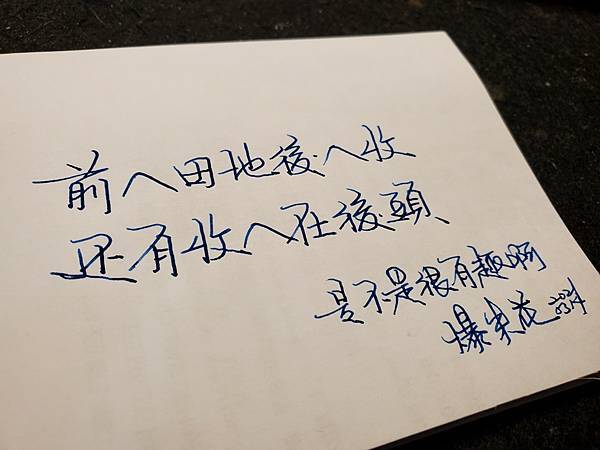 前人田地後人收
还有收人在後頭、
是不是很有趣啊
爆米花 2021